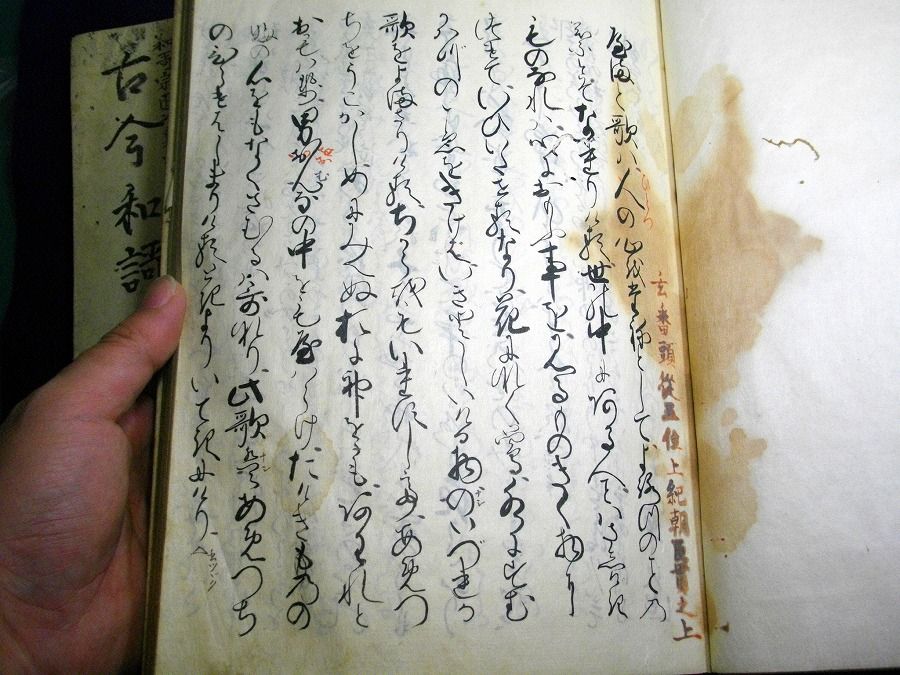 玄番頭従五位上紀朝臣貫之上
やまと歌ハ人の心をたねとしてよろつのことの
葉とそなれりける世中にある人ことわさしけき
ものなれハ心におもふ事をみるものきく物に
つけていひいたせるなり花になく鶯水にすむ
かはつのこゑをきけはいきとしいける物のいづれか
歌をよまさりけるちからをもいれすしてあめつ
ちをうこかしめにみえぬおに神をもあはれと
おもハせ男をんなの中をもやハらけたけきものの
ふの心をもなくさむるハ哥なり此歌あめつち
のひらけはしまりける時よりいてきにけり
古今和